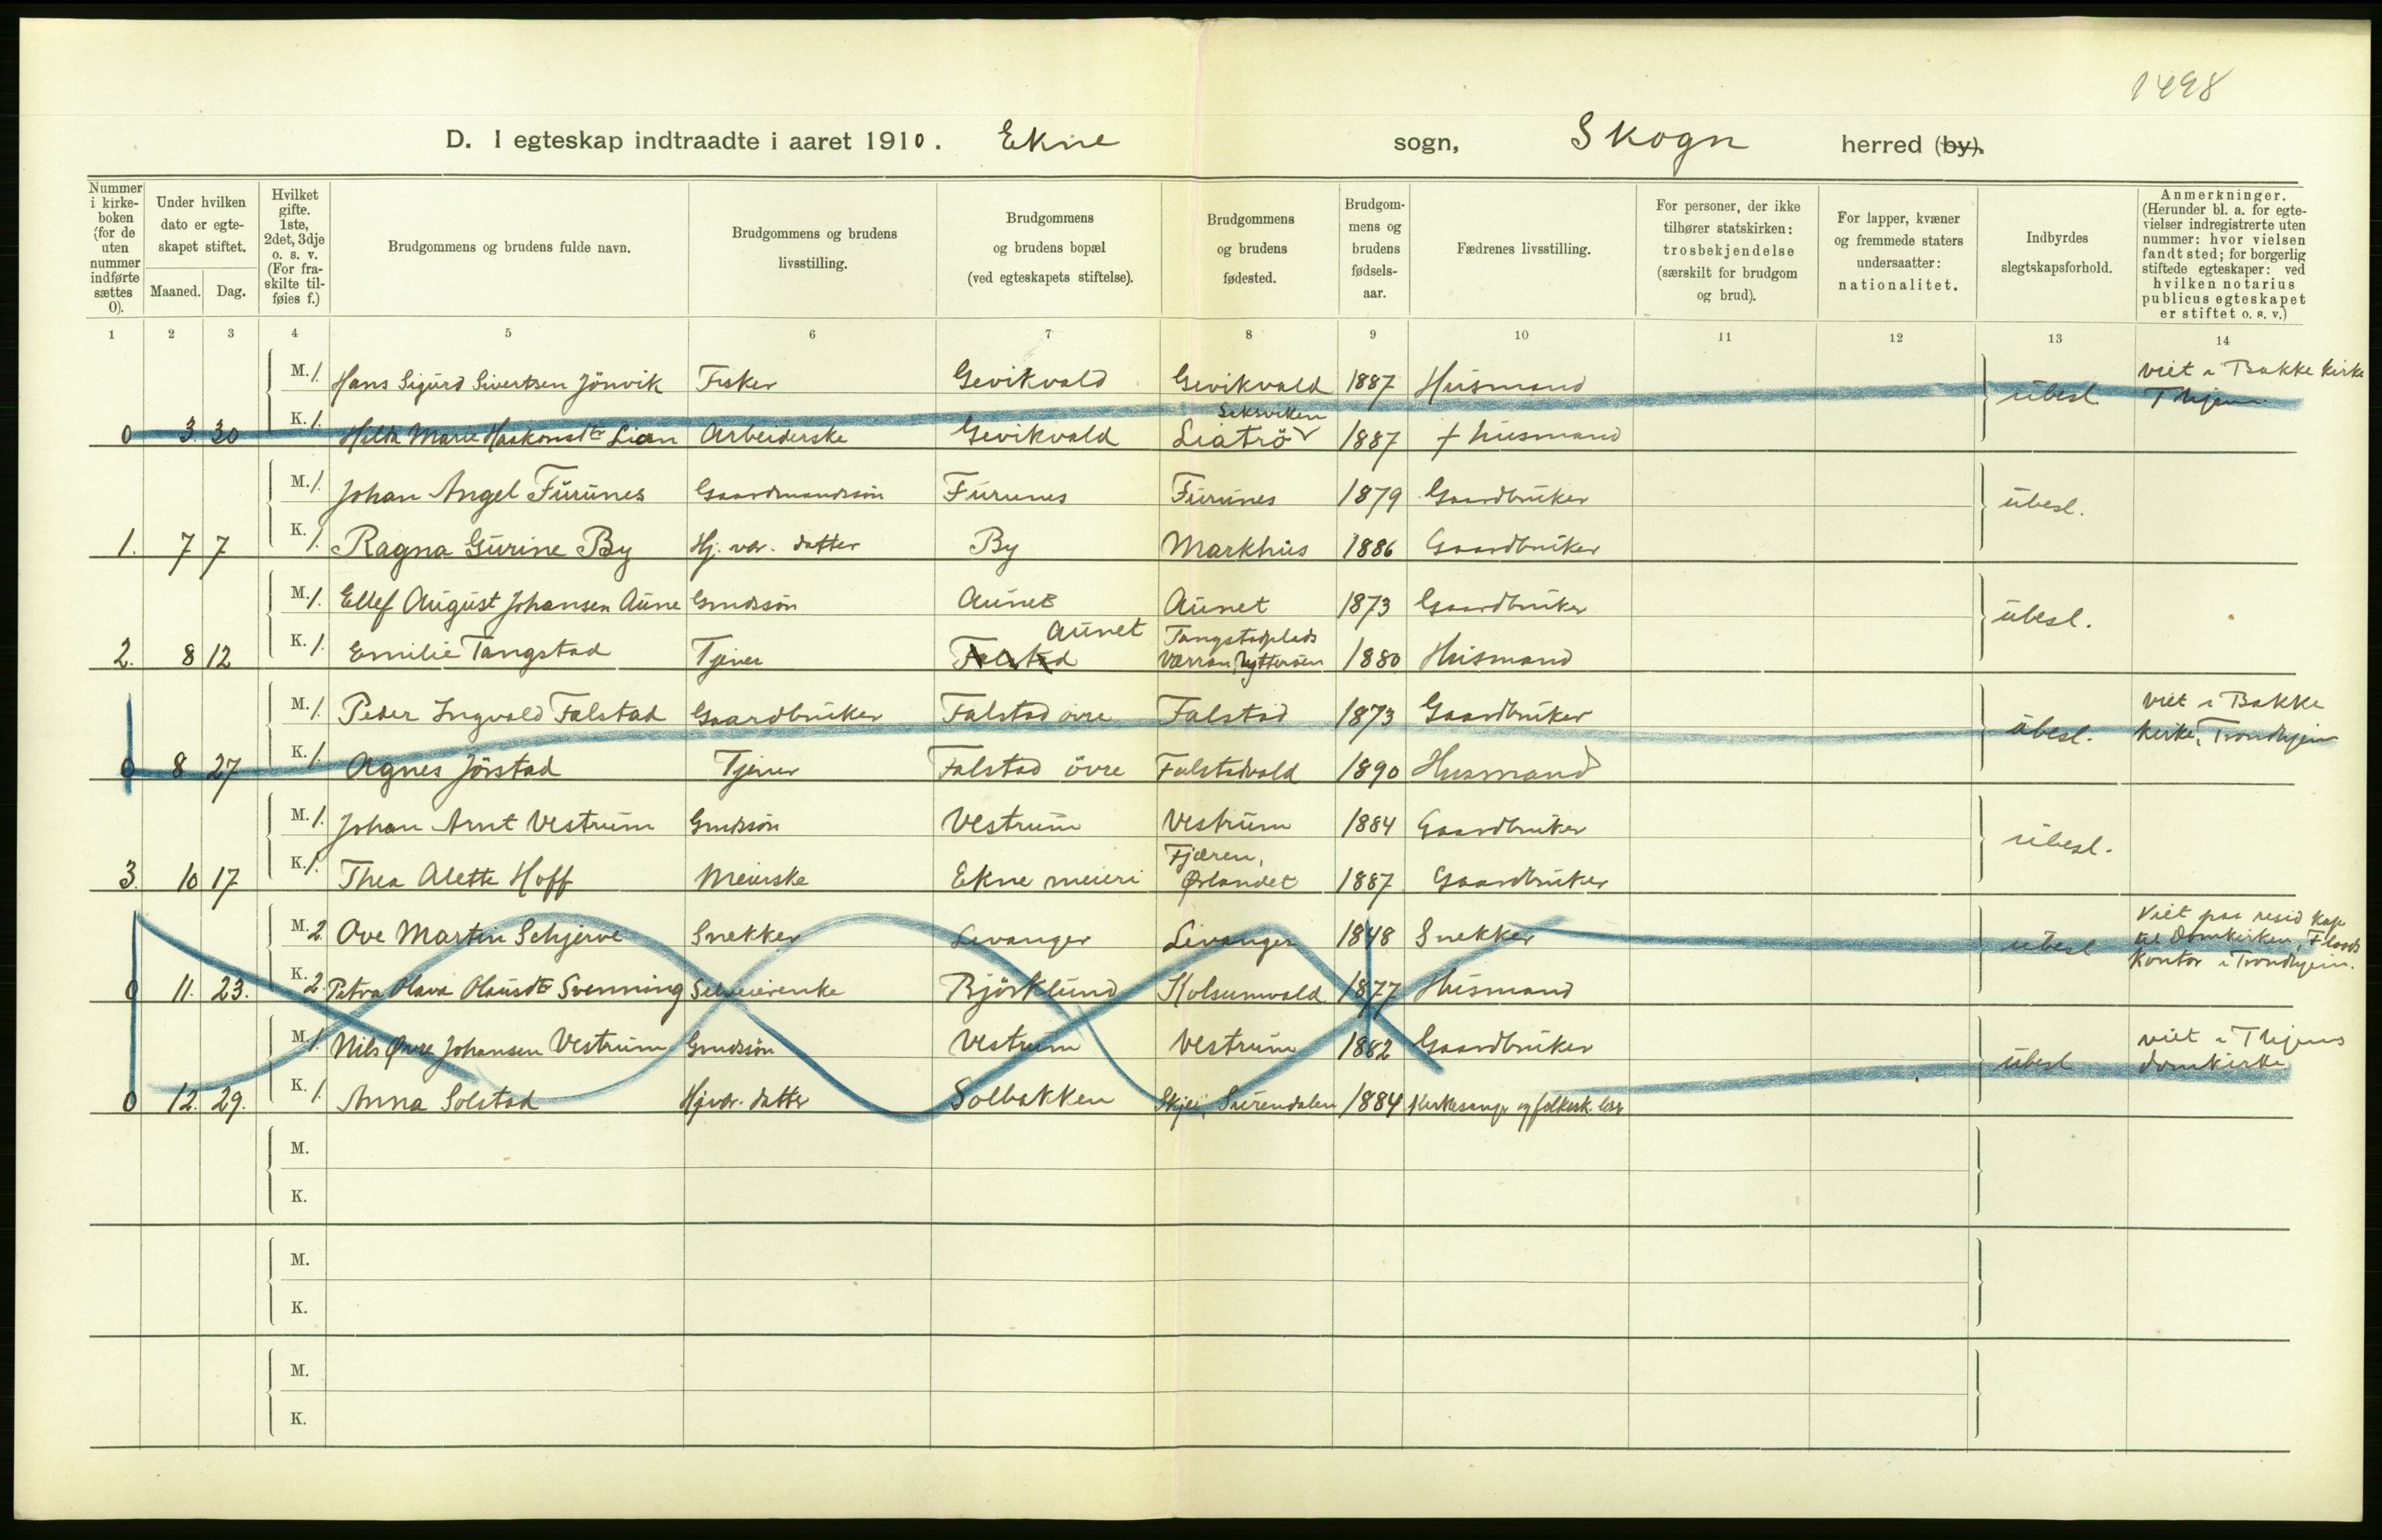 1498
D. I egteskap indtraadte i aaret 1910. Ekne sogn, Skogn herred (by).
Nummer i kirkeboken (for de uten nummer indførte sættes 0).
Under hvilken dato er egteskapet stiftet.
Maaned. Dag.
Hvilket gifte. 1ste, 2det, 3dje o. s. v. (For fraskilte tilføies f.)
Brudgommens og brudens fulde navn.
Brudgommens og brudens livsstilling.
Brudgommens og brudens bopæl (ved egteskapets stiftelse).
Brudgommens og brudens fødested.
Brudgommens og brudens fødselsaar.
Fædrenes livsstilling.
For personer, der ikke tilhører statskirken: trosbekjendelse (særskilt for brudgom og brud).
For lapper, kvæner og fremmede staters undersaatter: nationalitet.
Indbyrdes slegtskapsforhold.
Anmerkninger. (Herunder bl. a. for egtevielser indregistrerte uten nummer: hvor vielsen fandt sted; for borgerlig stiftede egteskaper: ved hvilken notarius publicus egteskapet er stiftet o. s. v.)
1 2 3 4 5 6 7 8 9 10 11 12 13 14
M. 1. Hans Sigurd Sivertsen Jönvik Fisker Gevikvald Gevikvald 1887 Husmand ubesl. viet i Bakke kirke Thjem
0 3. 30 K. 1. Hilda Marie Haakonsdtr Lian Arbeiderske Gevikvald Leksviken Liatrö 1887 † husmand
M. 1. Johan Angel Furunes Gaardmandssön Furunes Furunes 1879 Gaardbruker ubesl.
1. 7 7 K. 1. Ragna Gurine By Hj. vær. datter By Markhus 1886 Gaardbruker
M. 1. Ellef August Johansen Aune Gmdssön Aunet Aunet 1873 Gaardbruker ubesl.
2. 8 12 K. 1. Emilie Tangstad Tjener Falstad Aunet Tangstadplads Værran, Ytterøen 1880 Husmand
M. 1. Peder Ingvald Falstad Gaardbruker Falstad övre Falstad 1873 Gaardbruker ubesl. viet i Bakke kirke, Trondhjem
0 8 27 K. 1. Agnes Jörstad Tjener Falstad övre Falstadvald 1890 Husmand
M. 1. Johan Arnt Vestrum Gmdssön Vestrum Vestrum 1884 Gaardbruker ubesl.
3. 10 17 K. 1. Thea Alette Hoff Meierske Ekne meieri Fjæren, Ørlandet 1887 Gaardbruker
M. 2 Ove Martin Schjerve Snekker Levanger Levanger 1848 Snekker ubesl Viet paa resid. kap. til Domkirken, Floods Kontor i Trondhjem.
0 11. 23. K. 2. Petra Olava Olausdtr Svenning Selveierenke Björklund Kolsumvald 1877 Husmand
M. 1. Nils Øvre Johansen Vestrum Gmdssön Vestrum Vestrum 1882 Gaardbruker ubesl viet i Thjems domkirke
0 12. 29. K. 1. Anna Solstad Hjvær. datter Solbakken Skjei, Surendalen 1884 Kirkesanger og folkesk. lær
M.
K.
M.
K.
M.
K.